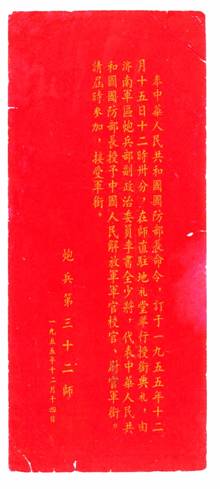 奉中華人民共和國國防部長命令，訂于一九五五年十二
月十五日十二時卅分，在師直駐地礼堂举行授銜典礼，由
济南軍區炮兵部副政治委員李書全少將，代表中華人民共
和國國防部長授予中國人民解放軍軍官校官、尉官軍銜。
請屆時参加，接受軍銜。
炮兵第三十二師
一九五五年十二月十四日